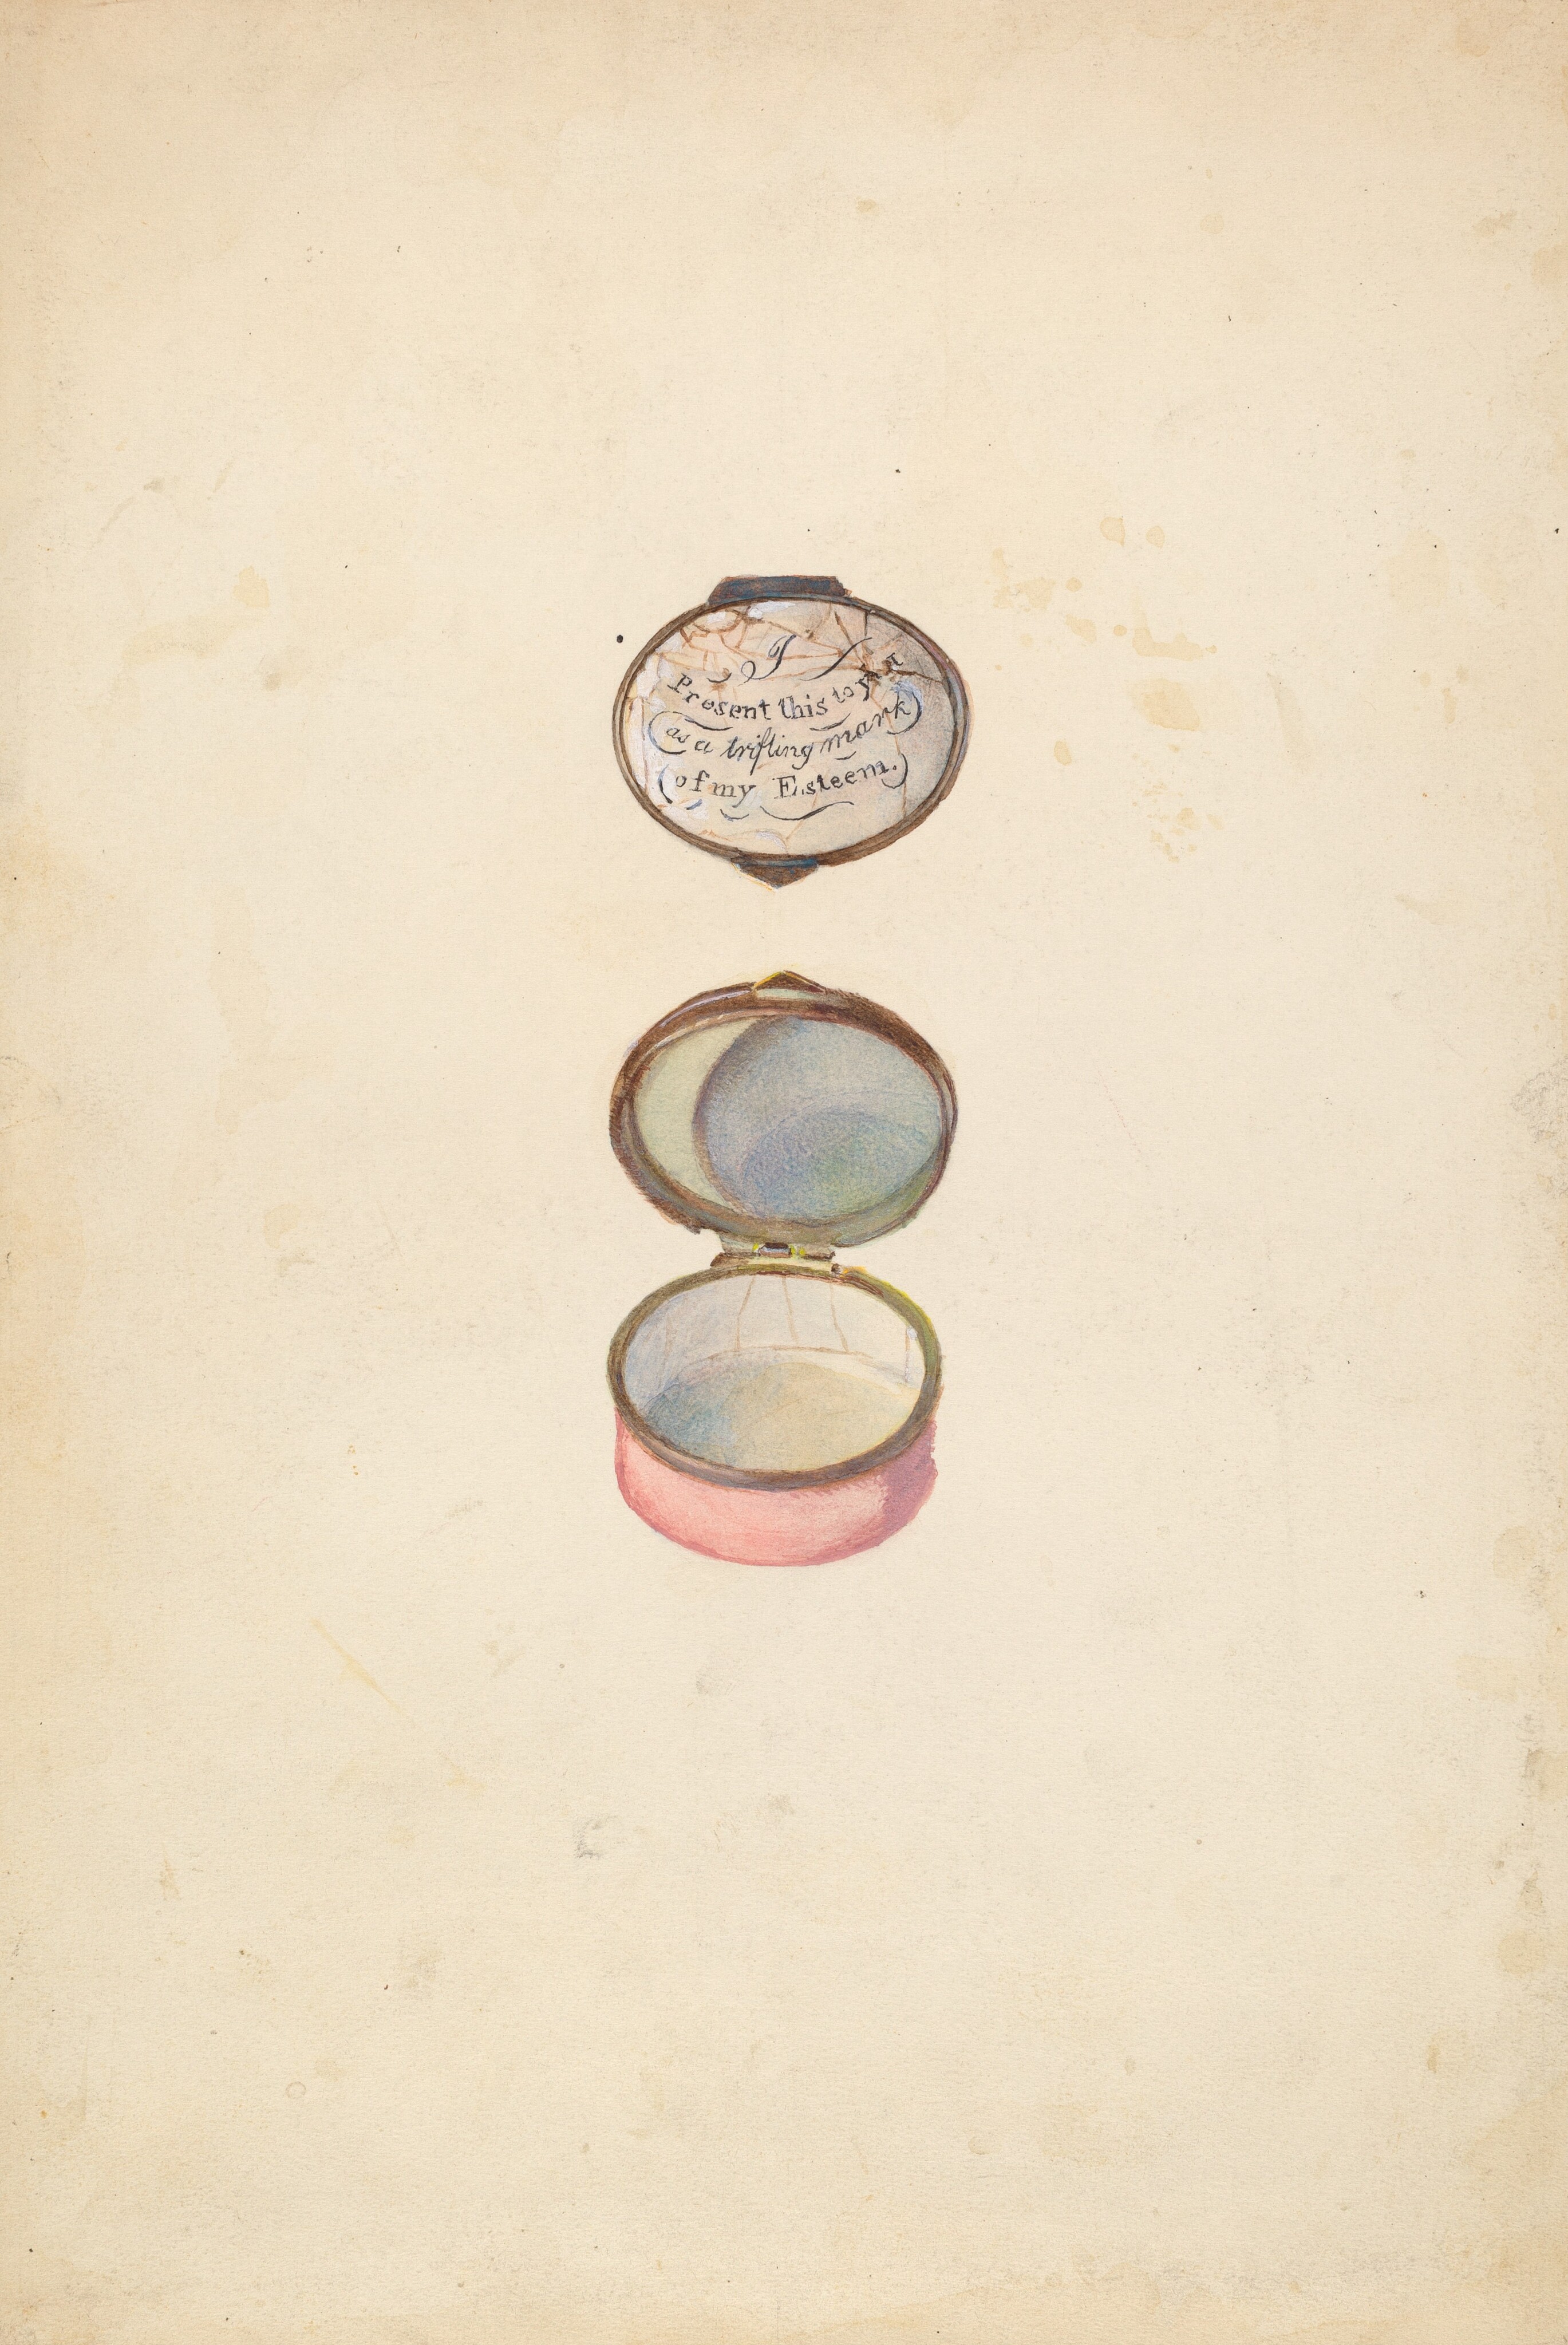 I
Present this to
as a trifling mark
of my Esteem.